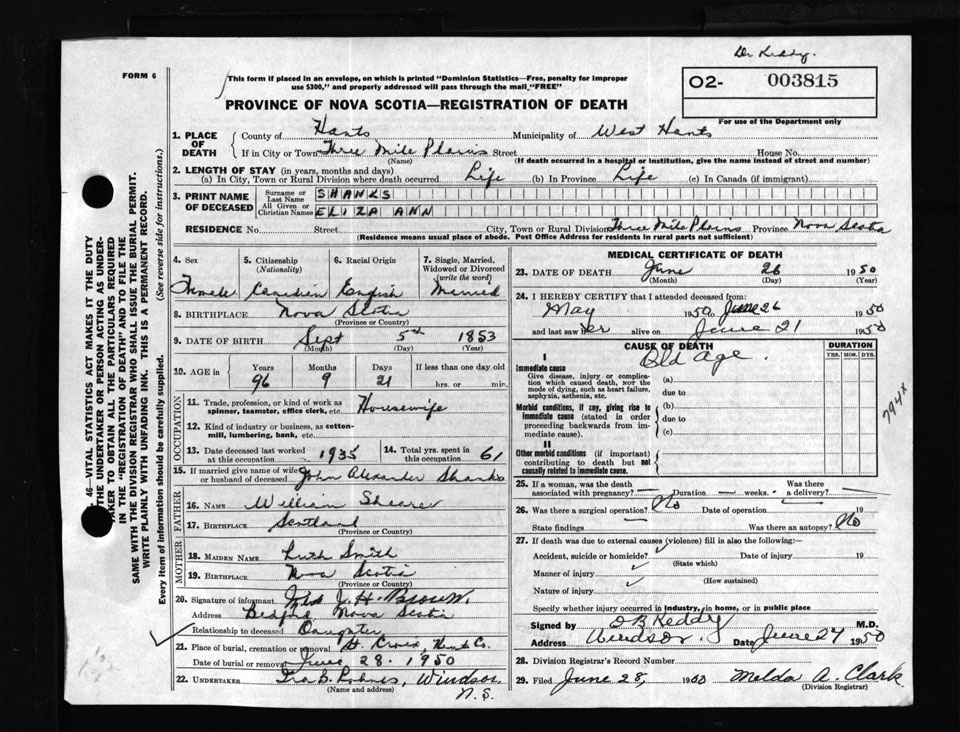 Dr Keddy.
FORM 6
This form if placed in an envelope, on which is printed "Dominion Statistics—Free, penalty for improper
use $300," and properly addressed will pass through the mail "FREE"
02- 003815
For use of the Department only
PROVINCE OF NOVA SCOTIA—REGISTRATION OF DEATH
1. PLACE OF DEATH
County of Hants Municipality of West Hants
If in City or Town Three Mile Plains Street House No.
(Name) (If death occurred in a hospital or institution, give the name instead of street and number)
2. LENGTH OF STAY (in years, months and days)
(a) In City, Town or Rural Division where death occurred Life (b) In Province Life (c) In Canada (if immigrant)
3. PRINT NAME OF DECEASED
Surname or Last Name SHANKS
All Given or Christian Names ELIZA ANN
RESIDENCE No. Street City, Town or Rural Division Three Mile Plains Province Nova Scotia
(Residence means usual place of abode. Post Office Address for residents in rural parts not sufficient)
4. Sex 5. Citizenship (Nationality) 6. Racial Origin 7. Single, Married, Widowed or Divorced (write the word)
Female Canadian English Married
8. BIRTHPLACE Nova Scotia
(Province or Country)
9. DATE OF BIRTH Sept 5th 1853
(Month) (Day) (Year)
10. AGE in Years Months Days If less than one day old
96 9 21 hrs. or min.
OCCUPATION
11. Trade, profession, or kind of work as spinner, teamster, office clerk, etc. Housewife
12. Kind of industry or business, as cotton-mill, lumbering, bank, etc.
13. Date deceased last worked at this occupation 1935 14. Total yrs. spent in this occupation 61
15. If married give name of wife or husband of deceased John Alexander Shanks
FATHER
16. Name William Shearer
17. Birthplace Scotland
(Province or Country)
MOTHER
18. MAIDEN NAME Ruth Smith
19. BIRTHPLACE Nova Scotia
(Province or Country)
20. Signature of informant Mrs J. H. Brown.
Address Bedford Nova Scotia
Relationship to deceased Daughter
21. Place of burial, cremation or removal St. Croix, Hants Co.
Date of burial or removal June 28. 1950
22. UNDERTAKER Windsor N.S.
(Name and address)
MEDICAL CERTIFICATE OF DEATH
23. DATE OF DEATH June 26 1950
(Month) (Day) (Year)
24. I HEREBY CERTIFY that I attended deceased from:
May 1950 to June 26 1950
and last saw her alive on June 21 1950
CAUSE OF DEATH DURATION
YRS. MOS. DYS.
I
Immediate cause Old Age.
Give disease, injury or complication which caused death, NOT the mode of dying, such as heart failure, asphyxia, asthenia, etc.
(a)
due to
Morbid conditions, if any, giving rise to immediate cause (stated in order proceeding backwards from immediate cause).
(b)
due to
(c)
II
Other morbid conditions (if important) contributing to death but not causally related to immediate cause.
794x
25. If a woman, was the death associated with pregnancy? Duration weeks. Was there a delivery?
26. Was there a surgical operation? No Date of operation 19
State findings Was there an autopsy? No
27. If death was due to external causes (violence) fill in also the following:—
Accident, suicide or homicide? Date of injury 19
(State which)
Manner of injury
(How sustained)
Nature of injury
Specify whether injury occurred in industry, in home, or in public place
Signed by O B Keddy M.D.
Address Windsor Date June 27 1950
28. Division Registrar's Record Number
29. Filed June 28, 1950 Melda A. Clark.
(Division Registrar)
46—VITAL STATISTICS ACT MAKES IT THE DUTY
OF THE UNDERTAKER OR PERSON ACTING AS UNDER-
TAKER TO OBTAIN ALL THE PARTICULARS REQUIRED
IN THE "REGISTRATION OF DEATH" AND TO FILE THE
SAME WITH THE DIVISION REGISTRAR WHO SHALL ISSUE THE BURIAL PERMIT.
WRITE PLAINLY WITH UNFADING INK. THIS IS A PERMANENT RECORD.
Every item of information should be carefully supplied. (See reverse side for instructions.)